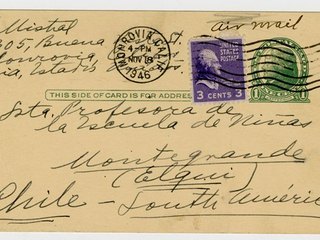 Mistral
Air mail
305, Buena St.
onrovia,
ia, Estados
MONROVIA, CALIF.
4-PM
NOV 18
1946
UNITED STATES
POSTAGE
3 CENTS 3
1 1
THIS SIDE OF CARD IS FOR ADDRESS
Srta. Profesora de
la Escuela de Niñas
Montegrande
(Elqui)
Chile - South Améric